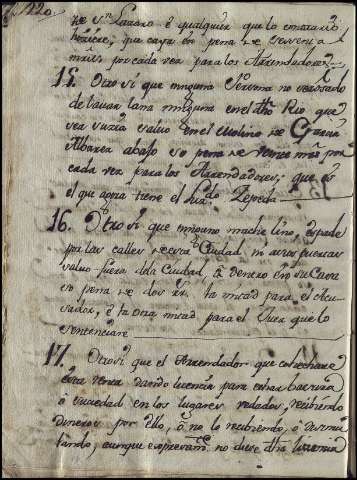 de Sn Lazaro o qualquier que lo contrario
hiciere, que caya en pena de
mrs por cada vez para los Arrendadores
15. Otro sí que ninguna Persona no sea osado
de lavar lana ninguna en el dho Rio que
sea suzia salvo en el Molino de Garcia
Albarea abajo so pena de mrs por
cada vez para los Arrendadores; que es
el que aora tiene el Lizdo Zepeda
16. Otro si que ninguno mache lino, espade
por las calles de esta Ciudad, ni
salvo fuera dela Ciudad, o dentro en su Casa
so pena de dos rs. la mitad para el Acu-
sador, e la otra mitad para el Juez que lo
sentenciare
17. Otro si que el Arrendador que cohechare
esta renta dando licencia para echar basura
ó suciedad en los lugares vedados, recibiendo
dineros por ello, ó no lo recibiendo, ó disimu
lando, aunque expresamte no diese dha licencia